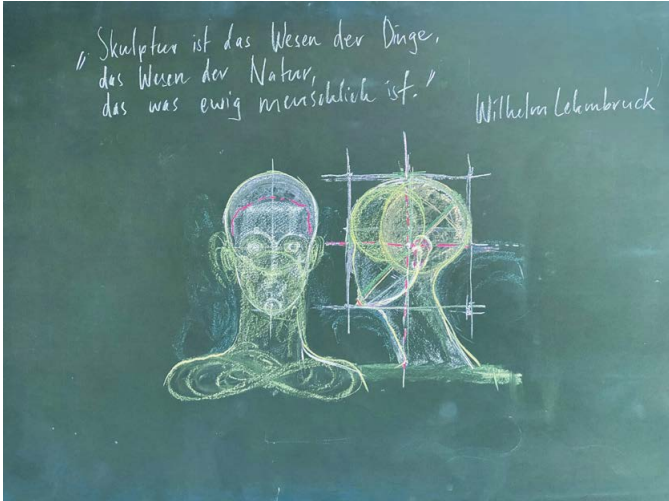 „Skulptur ist das Wesen der Dinge,
das Wesen der Natur,
das was ewig menschlich ist."
Wilhelm Lehmbruck